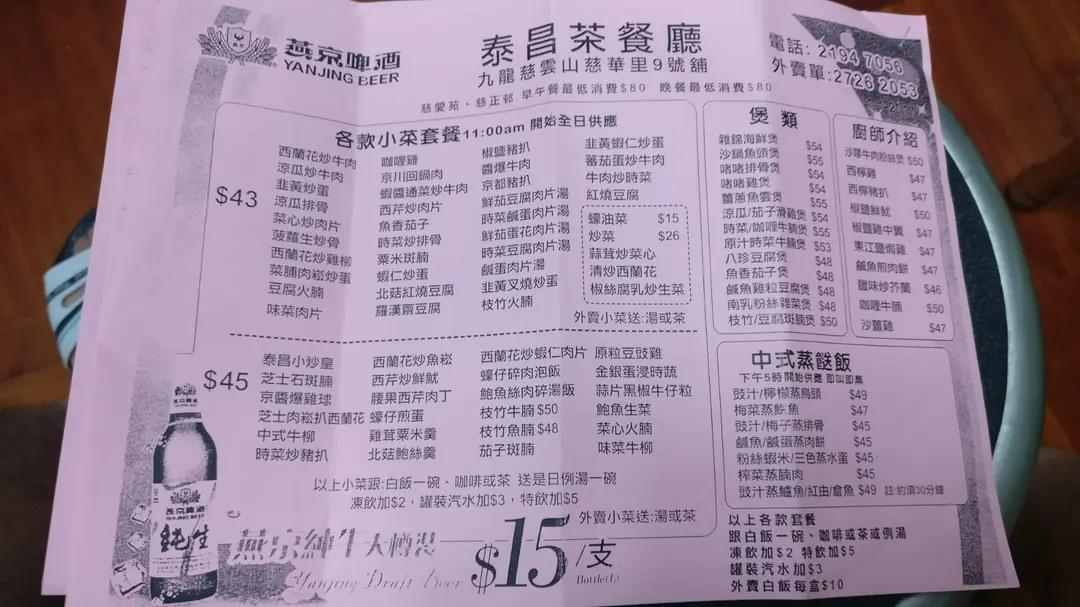 燕京啤酒
YANJING BEER
泰昌茶餐廳
九龍慈雲山慈華里9號舖
電話: 2194 7056
外賣單:2726 2053
慈愛苑、慈正邨 早午餐最低消費$80 晚餐最低消費$80
各款小菜套餐11:00am 開始全日供應
$43
西蘭花炒牛肉
涼瓜炒牛肉
韭黃炒蛋
涼瓜排骨
菜心炒肉片
菠蘿生炒骨
西蘭花炒雞柳
菜脯肉崧炒蛋
豆腐火腩
味菜肉片
咖喱雞
京川回鍋肉
蝦醬通菜炒牛肉
西芹炒肉片
魚香茄子
時菜炒排骨
粟米斑腩
蝦仁炒蛋
北菇紅燒豆腐
羅漢齋豆腐
椒鹽豬扒
醬爆牛肉
京都豬扒
鮮茄豆腐肉片湯
時菜鹹蛋肉片湯
鮮茄蛋花肉片湯
時菜豆腐肉片湯
鹹蛋肉片湯
韭黃叉燒炒蛋
枝竹火腩
韭黃蝦仁炒蛋
蕃茄蛋炒牛肉
牛肉炒時菜
紅燒豆腐
蠔油菜 $15
炒菜 $26
蒜茸炒菜心
清炒西蘭花
椒絲腐乳炒生菜
外賣小菜送:湯或茶
$45
泰昌小炒皇
芝士石斑腩
京醬爆雞球
芝士肉崧扒西蘭花
中式牛柳
時菜炒豬扒
西蘭花炒魚崧
西芹炒鮮魷
腰果西芹肉丁
蠔仔煎蛋
雞茸粟米羹
北菇鮑絲羹
西蘭花炒蝦仁肉片
蠔仔碎肉泡飯
鮑魚絲肉碎湯飯
枝竹牛腩 $50
枝竹魚腩 $48
茄子斑腩
原粒豆豉雞
金銀蛋浸時蔬
蒜片黑椒牛仔粒
鮑魚生菜
菜心火腩
味菜牛柳
以上小菜跟:白飯一碗、咖啡或茶 送是日例湯一碗
凍飲加$2，罐裝汽水加$3，特飲加$5
外賣小菜送:湯或茶
煲類
雜錦海鮮煲 $54
沙鍋魚頭煲 $55
啫啫排骨煲 $54
啫啫雞煲 $54
薑蔥魚雲煲 $55
涼瓜/茄子滑雞煲 $54
時菜/咖喱牛腩煲 $55
原汁時菜牛腩煲 $53
八珍豆腐煲 $48
魚香茄子煲 $48
鹹魚雞粒豆腐煲 $48
南乳粉絲雜菜煲 $48
枝竹/豆腐斑腩煲 $50
廚師介紹
沙嗲牛肉粉絲煲 $50
西檸雞 $47
西檸豬扒 $47
椒鹽鮮魷 $50
椒鹽雞中翼 $47
東江鹽焗雞 $47
鹹魚煎肉餅 $47
臘味炒芥蘭 $46
咖喱牛腩 $50
沙薑雞 $47
中式蒸餸飯
下午5時開始供應 即叫即蒸
豉汁/檸檬蒸烏頭 $49
梅菜蒸鯇魚 $47
豉汁/梅子蒸排骨 $45
鹹魚/鹹蛋蒸肉餅 $45
粉絲蝦米/三色蒸水蛋 $45
榨菜蒸腩肉 $45
豉汁蒸鱸魚/紅由/倉魚 $49 註:約須30分鐘
以上各款套餐
跟白飯一碗、咖啡或茶或例湯
凍飲加$2 特飲加$5
罐裝汽水加$3
外賣白飯每盒$10
燕京啤酒
YANJING BEER
純生
燕京純生大樽裝
Yanjing Draft Beer
$15/支